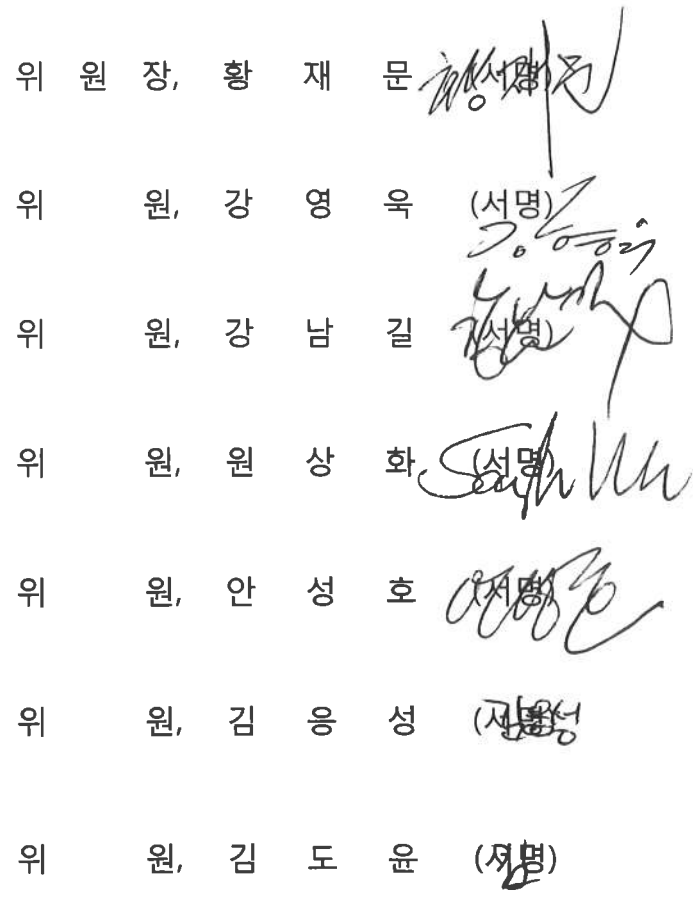 위 원 장, 황 재 문 (서명)
위 원, 강 영 욱 (서명)
위 원, 강 남 길 (서명)
위 원, 원 상 화 (서명)
위 원, 안 성 호 (서명)
위 원, 김 응 성 (서명)
위 원, 김 도 윤 (서명)